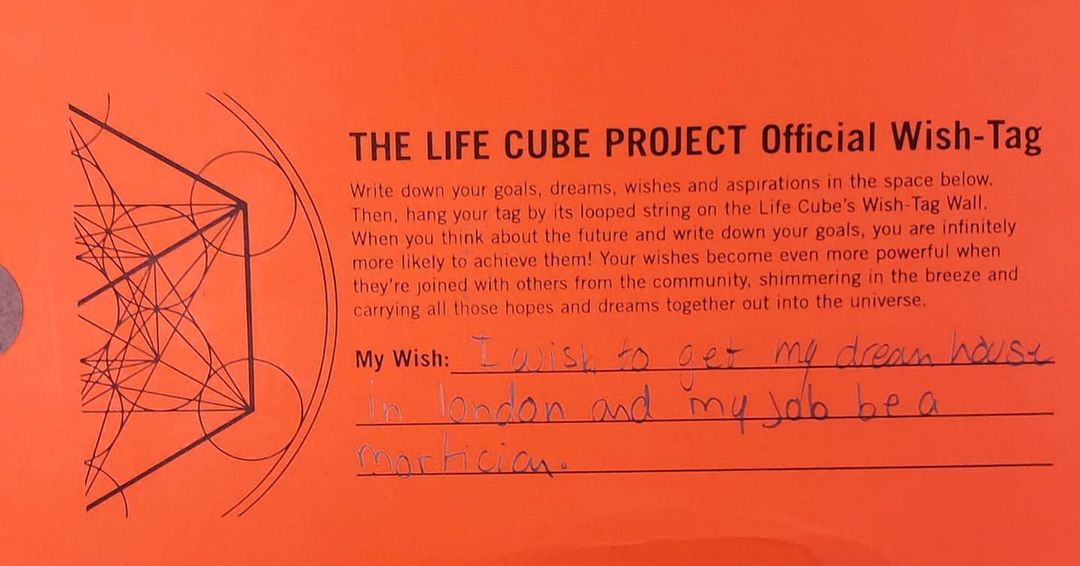 THE LIFE CUBE PROJECT Official Wish-Tag
Write down your goals, dreams, wishes and aspirations in the space below.
Then, hang your tag by its looped string on the Life Cube's Wish-Tag Wall.
When you think about the future and write down your goals, you are infinitely
more likely to achieve them! Your wishes become even more powerful when
they're joined with others from the community, shimmering in the breeze and
carrying all those hopes and dreams together out into the universe.
My Wish: I wish to get my drean house
in london and my Job be a
mortician.